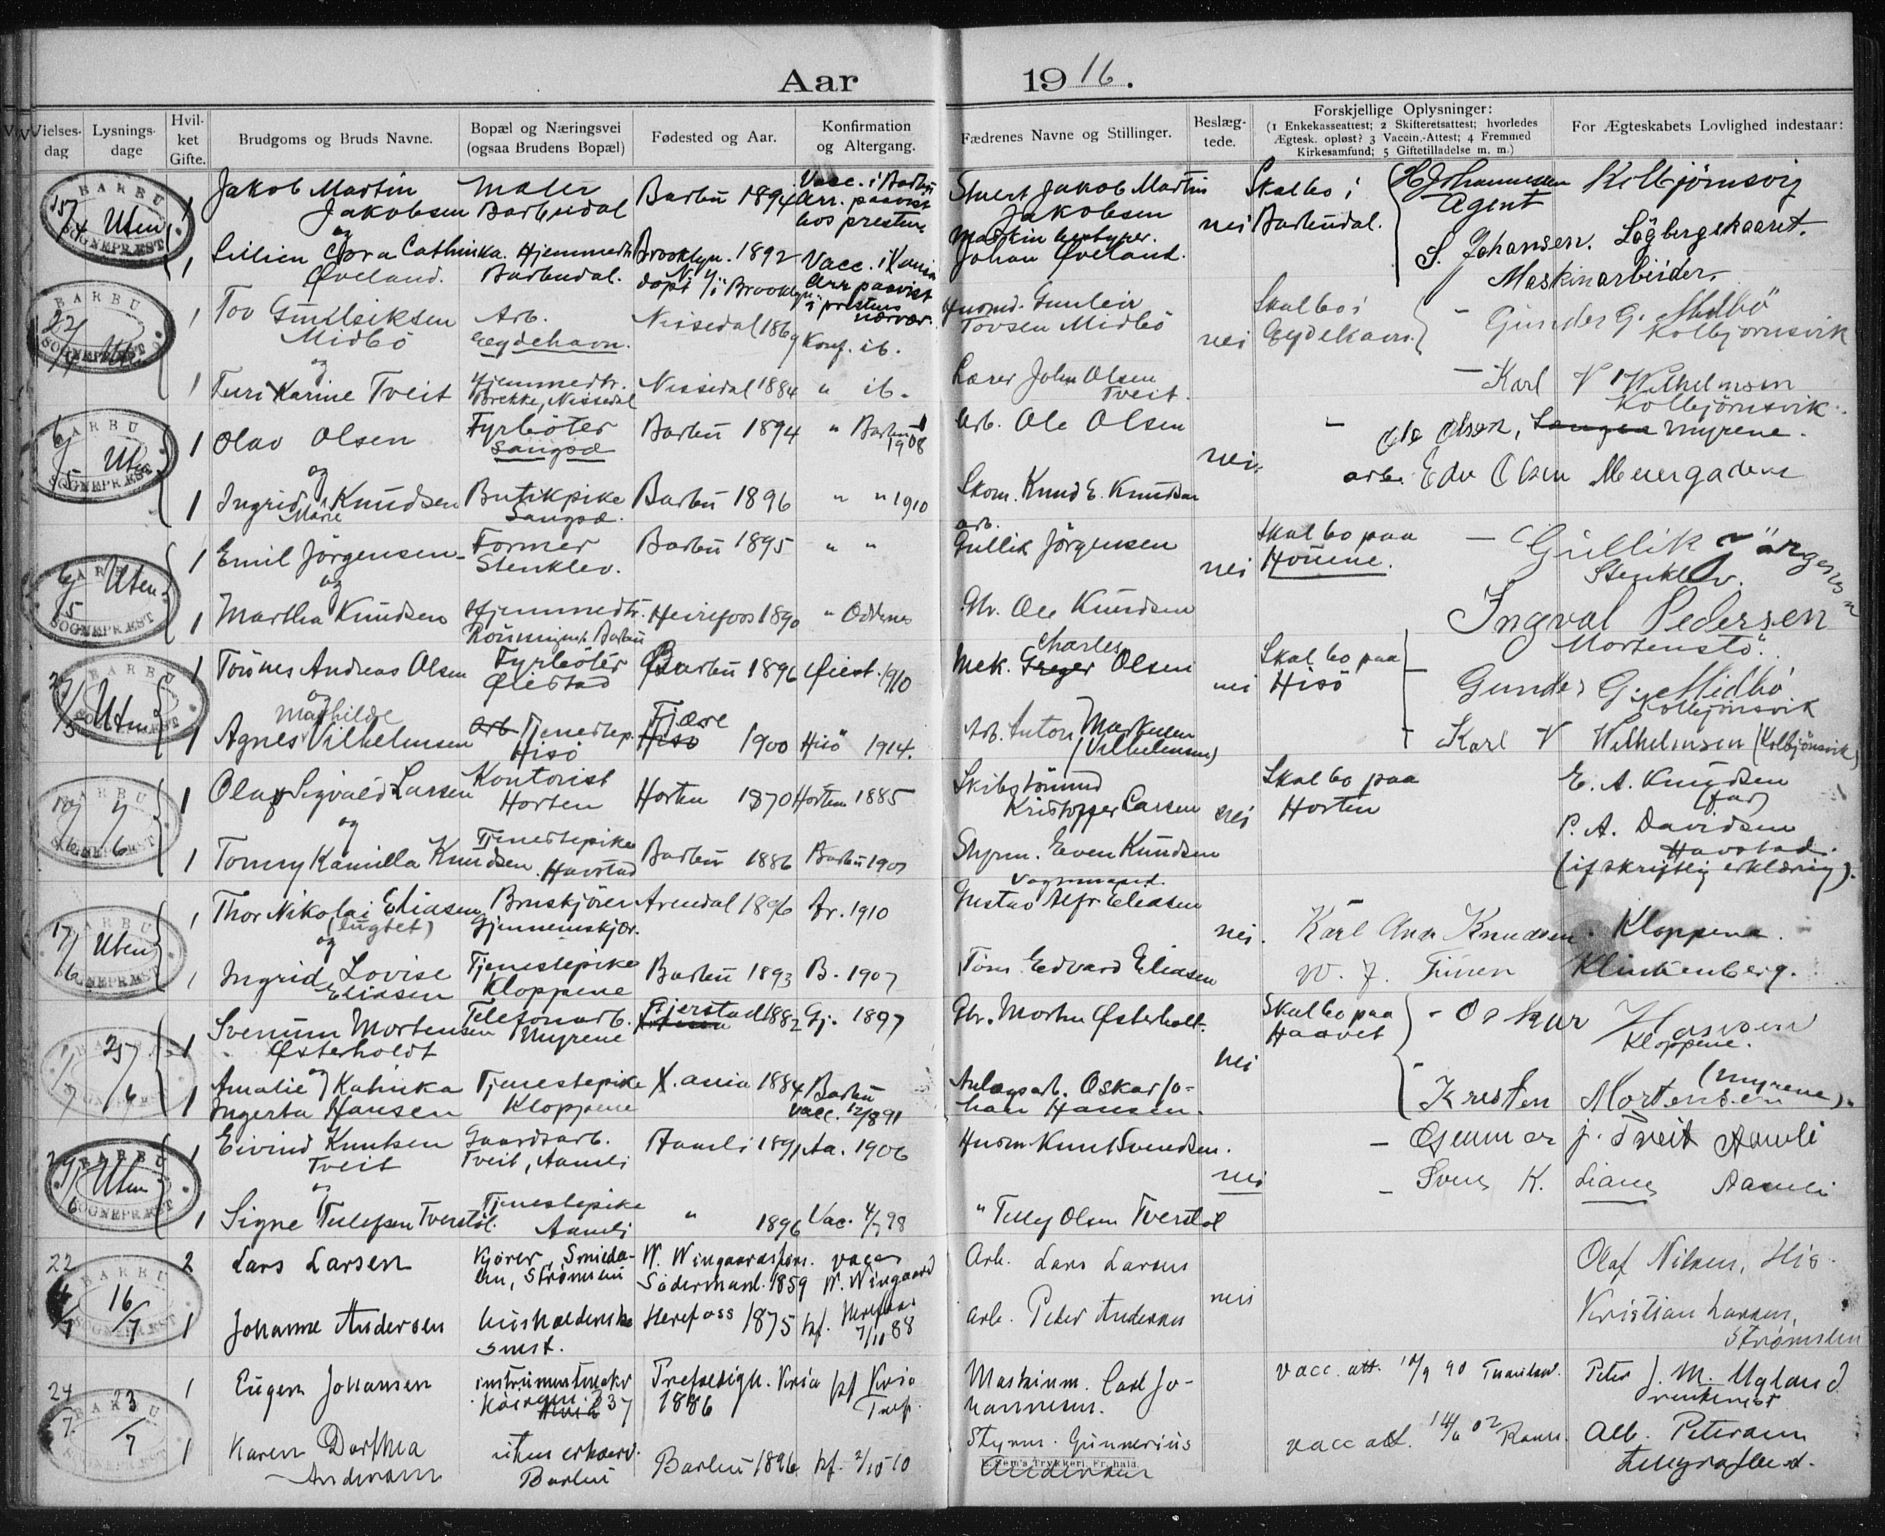 Aar 1916.
Vielses-dag
Lysnings-dage
Hvil-ket Gifte.
Brudgoms og Bruds Navne.
Bopæl og Næringsvei (ogsaa Brudens Bopæl)
Fødested og Aar.
Konfirmation og Altergang.
Fædrenes Navne og Stillinger.
Beslæg-tede.
Forskjellige Oplysninger:
(1 Enkekasseattest; 2 Skifteretsattest; hvorledes Ægtesk. opløst? 3 Vaccin.-Attest; 4 Fremmed Kirkesamfund; 5 Giftetilladelse m. m.)
For Ægteskabets Lovlighed indestaar:
BARBU SOGNEPRÆST
15/4 Uten
1 Jakob Martin Jakobsen Barbudal Barbu 1894
Vacc. i Barbu Arr. paavist hos presten
Jakob Martin Jakobsen nei Skal bo i Barbudal.
H Johannessen Kolbjørnsvig
Agent
og
1 Lillien Cora Cathinka Øveland. Hjemmedtr. Barbudal. Brooklyn. 1892 N.Y.
døpt i Brooklyn
Johan Øveland.
S. Johansen. Løgbergskaaret.
Maskinarbeider.
BARBU SOGNEPRÆST
22/4 Uten
1 Tov Gunleiksen Midbö Arb. Eydehavn. Nissedal 1869 Konf. ib.
Husmd. Gunleik Tovsen Midbö nei Skal bo i Eydehavn.
Gunder G. Midbö Kolbjørnsvik
og
1 Turi Karine Tveit Hjemmedtr. Brekke, Nissedal Nissedal 1884 " ib.
Lærer John Olsen Tveit.
Karl V Wilhelmsen Kolbjörnsvik.
BARBU SOGNEPRÆST
6/5 Uten
1 Olav Olsen Fyrböter Sangsæ Barbu 1894 " Barbu 1908
Arb. Ole Olsen nei
Ole Olsen, Myrene.
og
1 Ingrid Marie Knudsen Butikpike Sangsæ. Barbu 1896 " " 1910
Skom. Knud E. Knudsen
arb. Edv Olsen Meiergadens
BARBU SOGNEPRÆST
6/5 Uten
1 Emil Jörgensen Former Stenklev. Barbu 1895 " "
arb. Gullik Jörgensen nei Skal bo paa Houene.
Gullik Jörgensen Stenklev.
og
1 Martha Knudsen Hjemmedtr. Barbu Heirefoss 1890 " Oddernes
Gbr. Ole Knudsen
Ingval Pedersen
Mortenstö.
BARBU SOGNEPRÆST
Uten
1 Tönnes Andreas Olsen Fyrböter Øiestad Barbu 1896 Øiest. 1910
Mek. Charles Olsen nei Skal bo paa Hisö
Gunder G. Midbö. Kolbjönsvik
og
1 Agnes Mathilde Vilhelmsen Tjenestep. Hisö Fjære 1900 Hisö 1914.
Arb. Anton Markusen (Vilhelmsen)
Karl V Wilhelmsen (Kolbjönsvik)
BARBU SOGNEPRÆST
1 Olaf Sigvald Larsen Kontorist Horten Horten 1870 Horten 1885
Skibstömmd Kristoffer Larsen nei Skal bo paa Horten
E. A. Knudsen (far)
og
1 Tomry Kamilla Knudsen. Tjenestepike Havstad Barbu 1886 Barbu 1901
Styrm. Even Knudsen
P. A. Davidsen Havstad.
(if skriftlig erklæring).
BARBU SOGNEPRÆST
17/6 Uten
1 Thor Nikolai Eliasen (lugtet) Bruskjörer Gjennemskjær. Arendal 1896 Ar. 1910
Vognmand. Gustav Alfr Eliasen nei.
Karl And Knudsen. Kloppene.
og
1 Ingrid Lovise Eliasen Tjenestepike Kloppene Barbu 1893 B. 1907
Töm. Edvard Eliasen
W. J. Klinkenberg.
BARBU SOGNEPRÆST
1/7 25/6
1 Svenum Mortensen Østerholdt Telefonarb. Myrene Gjerstad 1882 Gj. 1897
Gbr. Morten Østerholt. nei Skal bo paa Haavet
Oskar Hansen Kloppene.
og
1 Amalie Katinka Ingerta Hansen Tjenestepike Kloppene X.ania 1884 Barbu vacc. 12/8 91
Anlægsarb. Oskar Jo-han Hansen.
Kresten Mortensen (Myrene).
BARBU SOGNEPRÆST
Uten
1 Eivind Knutsen Tveit Gaardsarb. Tveit, Aamli Aamli 1891 Aa. 1906
Husm Knut Svendsen. nei
Gunnar J. Tveit Aamli
og
1 Signe Tellefsen Tverstöl Tjenestepike Aamli " 1896 Vac. 4/7 98
" Tellef Olsen Tverstöl
Sven K. Liane Aamli
BARBU SOGNEPRÆST
22/7 16/7
2 Lars Larsen Kjører, Smeda-len, Strømmen W. Wingaarasken. Södermanl. 1859 vacc W. Wingaard
Arb. Lars Larsen nei
Olaf Nilsen, His.
1 Johanne Andersen husholderske smst. Herefoss 1875 kf. Herefoss 7/10 88
Arb. Peder Andersen
Kristian Larsen, Strømmen
BARBU SOGNEPRÆST
24/7 23/7
1 Eugen Johansen instrumentmaker 37 Kria 1886 kf Kria
Maskinm. Carl Jo-hannesen.
vacc. att. 10/9 90
Peter J. M. Ugland rentenist
1 Karen Dorthea Andersen uten erhverv. Barbu Barbu 1896 kf. 2/10 10
Styrm. Gunnerius Andersen
vacc att. 14/6 02
Alb. Petersen
Telegrafbud.